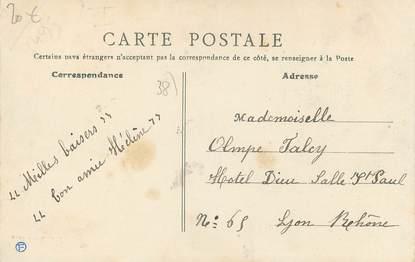 20 €
CARTE POSTALE
Certains pays étrangers n'acceptant pas la correspondance de ce côté, se renseigner à la Poste
Correspondance
Adresse
38)
„ Milles baisers „
„ Ton amie Hélène „
Mademoiselle
Olmpe Faley
Hotel Dieu Salle St Paul
No: 65 Lyon Rhône